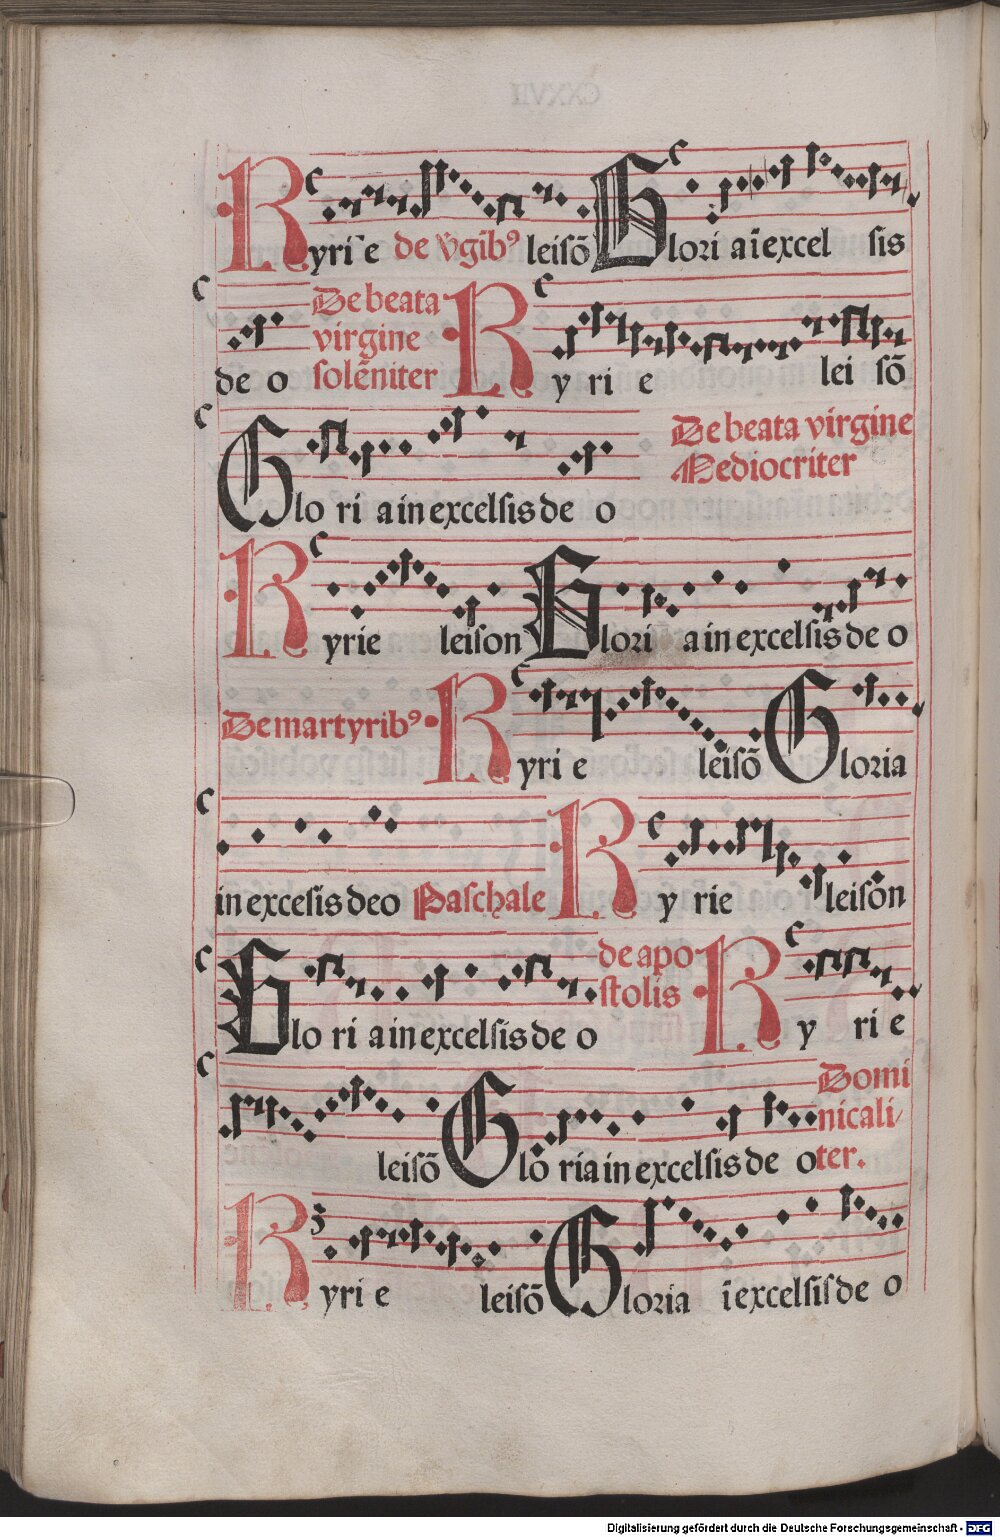 Kyrie de v̄gib⁹ leisō Glori a ī excel sis
de o De beata virgine solēniter Ky ri e lei sō
Glo ri a in excelsis de o De beata virgine Mediocriter
Kyrie leison Glori a in excelsis de o
De martyrib⁹ Kyri e leisō Gloria
in excesis deo Paschale Ky rie leison
Glo ri a in excelsis de o de apo stolis Ky ri e
leisō Glo ria in excelsis de o Domi nicali ter.
Kyri e leisō Gloria ī excelsis de o
Digitalisierung gefördert durch die Deutsche Forschungsgemeinschaft - DFG